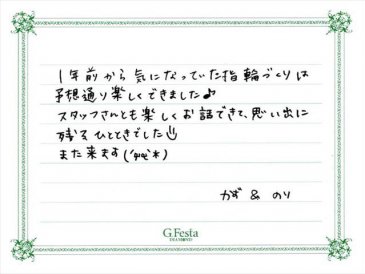 1年前から気になっていた指輪づくりは
予想通り楽しくできました♪
スタッフさんとも楽しくお話できて、思い出に
残るひとときでした
また来ます(´ψψ`*)
かず & のり
G.Festa
DIAMOND